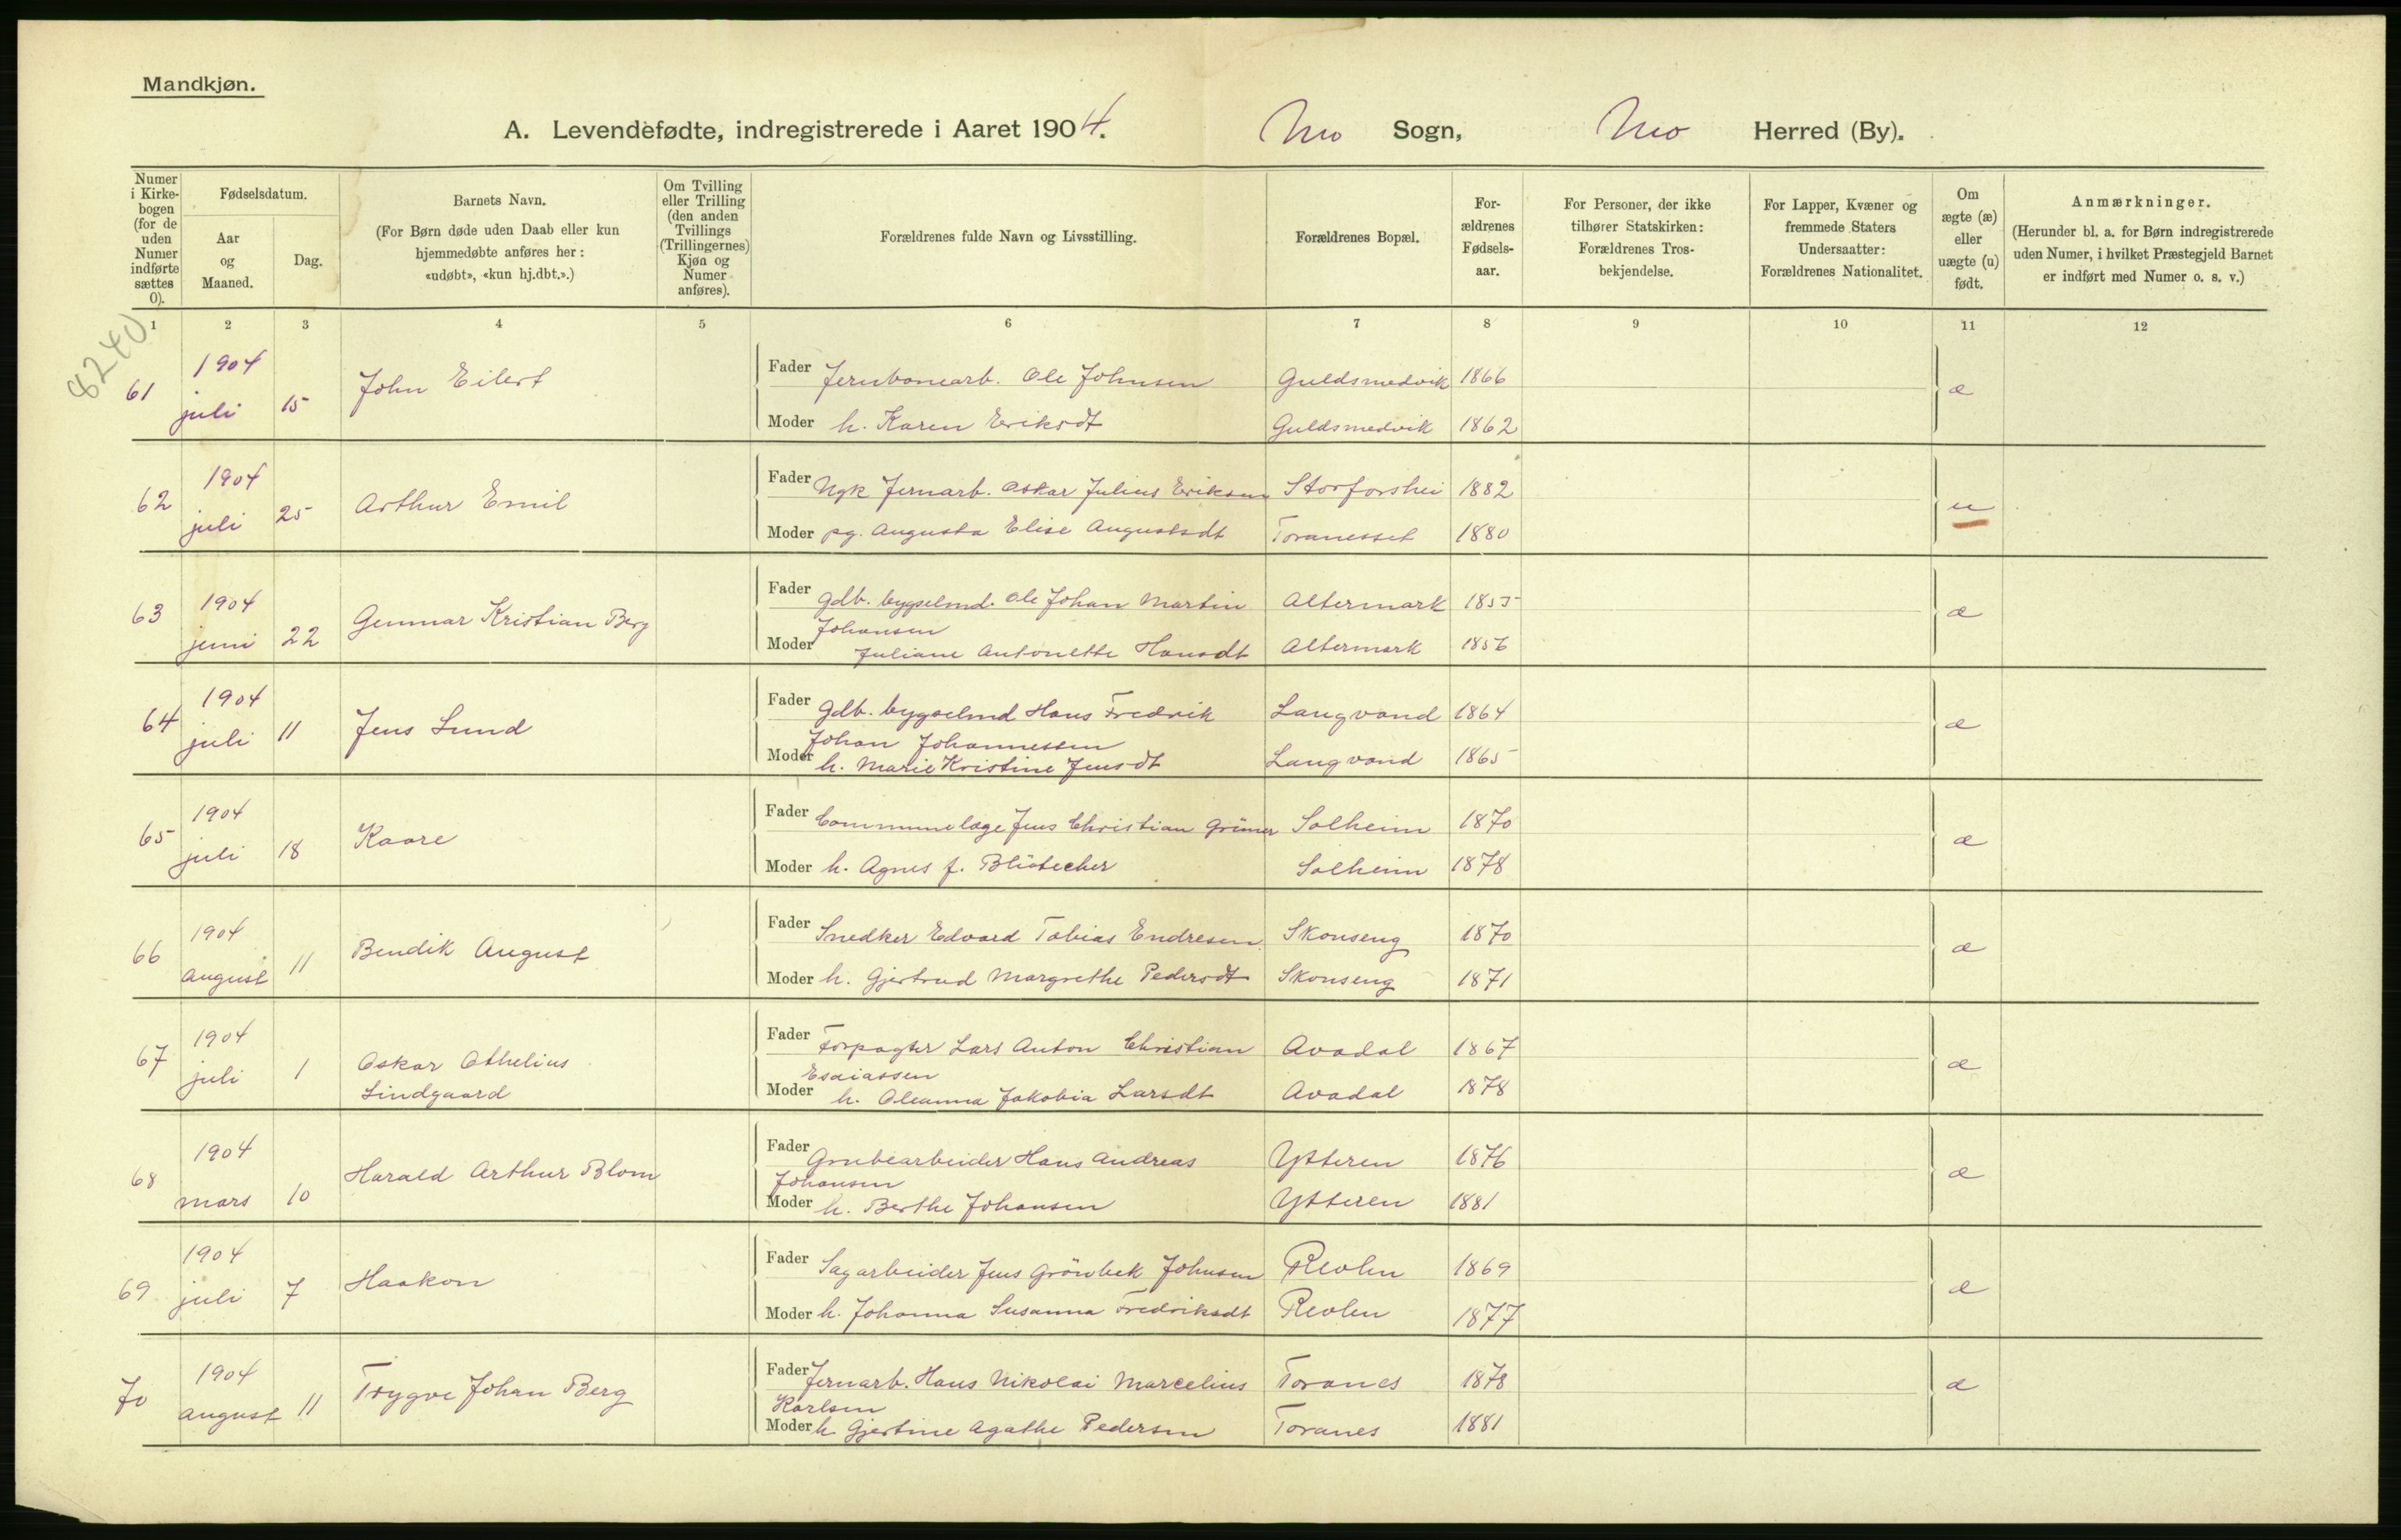 Mandkjøn.
A. Levendefødte, indregistrerede i Aaret 1904. Mo Sogn, Mo Herred (By).
Numer i Kirke-bogen (for de uden Numer indførte sættes 0).
Fødselsdatum.
Aar og Maaned.
Dag.
Barnets Navn.
(For Børn døde uden Daab eller kun
hjemmedøbte anføres her:
«udøbt», «kun hj.dbt.».)
Om Tvilling
eller Trilling
(den anden
Tvillings
(Trillingernes)
Kjøn og
Numer
anføres).
Forældrenes fulde Navn og Livsstilling.
Forældrenes Bopæl.
For-
ældrenes
Fødsels-
aar.
For Personer, der ikke
tilhører Statskirken:
Forældrenes Tros-
bekjendelse.
For Lapper, Kvæner og
fremmede Staters
Undersaatter:
Forældrenes Nationalitet.
Om
ægte (æ)
eller
uægte (u)
født.
Anmærkninger.
(Herunder bl. a. for Børn indregistrerede
uden Numer, i hvilket Præstegjeld Barnet
er indført med Numer o. s. v.)
1 2 3 4 5 6 7 8 9 10 11 12
8240
61 1904 juli 15 John Eilert
Fader Jernbanearb. Ole Johnsen Guldsmedvik 1866 æ
Moder h. Karen Eriksdt Guldsmedvik 1862
62 1904 juli 25 Arthur Emil
Fader Ugk Jernarb. Oskar Julius Eriksen Storforshei 1882 u
Moder pg. Augusta Elise Augustsdt Toranesset 1880
63 1904 juni 22 Gunnar Kristian Berg
Fader gdb. bygselmd. Ole Johan Martin Altermark 1855 æ
Johansen
Moder Juliane Antonette Hansdt Altermark 1856
64 1904 juli 11 Jens Lund
Fader gdb. bygselmd Hans Fredrik Langvand 1864 æ
Johan Johannessen
Moder h. Marie Kristine Jensdt Langvand 1865
65 1904 juli 18 Kaare
Fader Communelæge Jens Christian Grüner Solheim 1870 æ
Moder h. Agnes f. Solheim 1878
66 1904 august 11 Bendik August
Fader Snedker Edvard Tobias Endresen Skonseng 1870 æ
Moder h. Gjertrud Margrethe Pedersdt Skonseng 1871
67 1904 juli 1 Oskar Othelius
Lindgaard
Fader Forpagter Lars Anton Christian Avadal 1867 æ
Esaiassen
Moder h. Oleanna Jakobia Larsdt Avadal 1878
68 1904 mars 10 Harald Arthur Blom
Fader Grubearbeider Hans Andreas Ytteren 1876 æ
Johansen
Moder h. Berthe Johansen Ytteren 1881
69 1904 juli 7 Haakon
Fader Sagarbeider Jens Grönbek Johnsen Revlen 1869 æ
Moder h. Johanna Susanna Fredriksdt Revlen 1877
70 1904 august 11 Trygve Johan Berg
Fader Jernarb. Hans Nikolai Marcelius Toranes 1878 æ
Karlsen
Moder h Gjertine Agathe Pedersen Toranes 1881